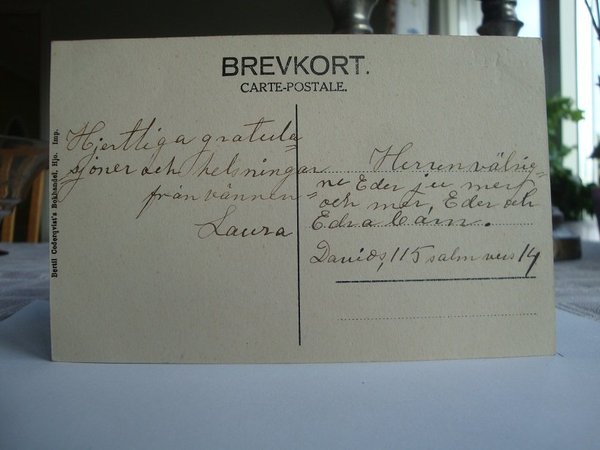 BREVKORT.
CARTE-POSTALE.
Hjertliga gratula=
sjoner och helsningar
från vännen
Laura
Herren välsig=
ne Eder ju mer
och mer, Eder och
Edra barn.
Davids, 115 salm vers 14
Bertil Coderqvist's Bokhandel, Hjo. Imp.